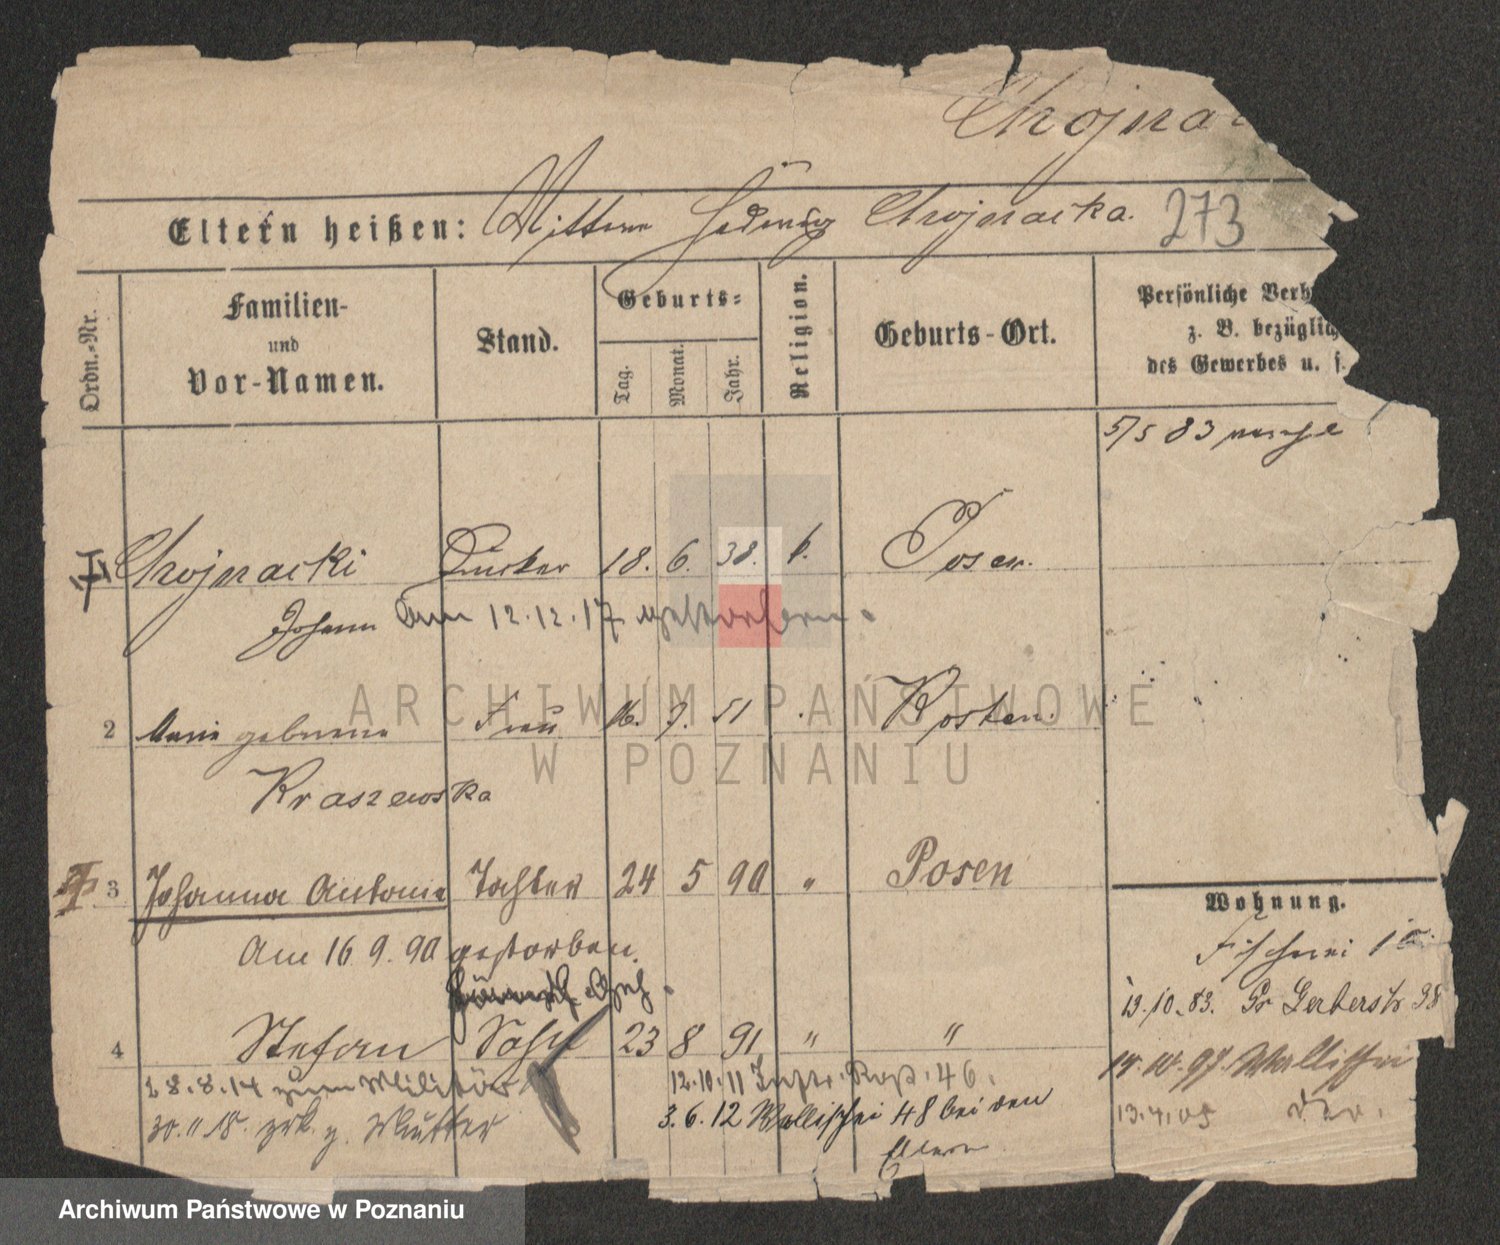 Chojna
Eltern heißen: Mutter Hedwig Chojnacka. 273
Ordn.-Nr.
Familien-
und
Vor-Namen.
Stand.
Geburts-
Tag.
Monat.
Jahr.
Religion.
Geburts-Ort.
Persönliche Verh
z. B. bezüglich
des Gewerbes u. f.
5/5 83
Chojnacki 18. 6. 38. k. Posen.
Johann am 12.12.17 gestorben.
2 geborene Frau 16. 7. 51 Kosten.
Kraszewska
3 Johanna Antonie Tochter 24 5 90 " Posen
Am 16 9. 90 gestorben.
4 Stefan Sohn 23 8 91 " "
28.8.14 zum Militär 12.10.11 Inftr. Rgt. 46.
30.11.18. zrk. z. Mutter 3.6.12 Wallischei 48 bei den
Eltern
Wohnung.
Fischerei
13.10.83. Gr Gerberstr 38
Wallischei
13.4.05
ARCHIWUM PAŃSTWOWE
W POZNANIU
Archiwum Państwowe w Poznaniu